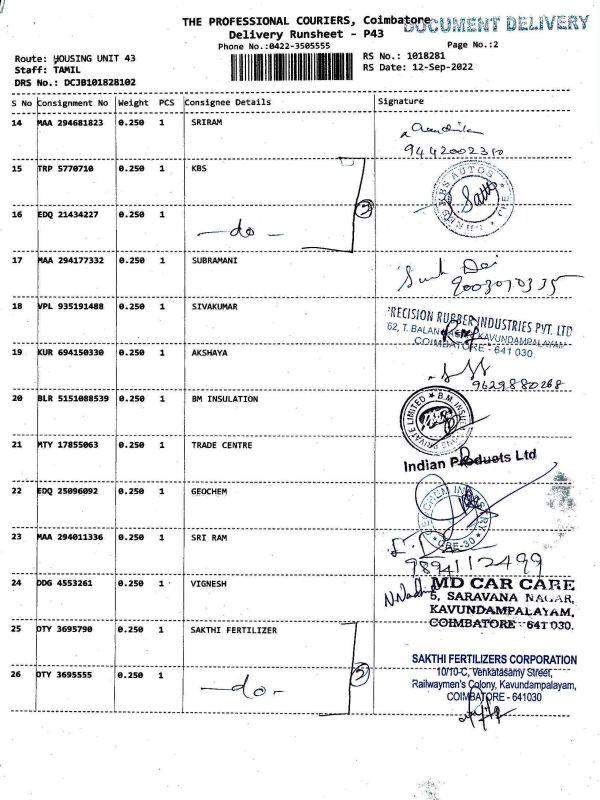 THE PROFESSIONAL COURIERS, Coimbatore
DOCUMENT DELIVERY
Delivery Runsheet - P43
Phone No.:0422-3505555
Page No.:2
Route: HOUSING UNIT 43
RS No.: 1018281
Staff: TAMIL
RS Date: 12-Sep-2022
DRS No.: DCJB101828102
S No Consignment No Weight PCS Consignee Details Signature
14 MAA 294681823 0.250 1 SRIRAM
9442002310
15 TRP 5770710 0.250 1 KBS
KBS AUTOS
16 EDQ 21434227 0.250 1 -do-
17 MAA 294177332 0.250 1 SUBRAMANI
9003070335
18 VPL 935191488 0.250 1 SIVAKUMAR
PRECISION RUBBER INDUSTRIES PVT. LTD
62, T. KAVUNDAMPALAYAM
COIMBATORE - 641 030.
19 KUR 694150330 0.250 1 AKSHAYA
9629880268
20 BLR 5151088539 0.250 1 BM INSULATION
PRIVATE LIMITED * B.M. INSU
21 MTY 17855063 0.250 1 TRADE CENTRE
Indian Products Ltd
22 EDQ 25096092 0.250 1 GEOCHEM
CBE-30
23 MAA 294011336 0.250 1 SRI RAM
9894112499
24 DDG 4553261 0.250 1 VIGNESH
MD CAR CARE
5, SARAVANA NAGAR,
KAVUNDAMPALAYAM,
COIMBATORE - 641 030.
25 DTY 3695790 0.250 1 SAKTHI FERTILIZER
26 DTY 3695555 0.250 1 -do-
SAKTHI FERTILIZERS CORPORATION
10/10-C, Venkatasamy Street,
Railwaymen's Colony, Kavundampalayam,
COIMBATORE - 641030